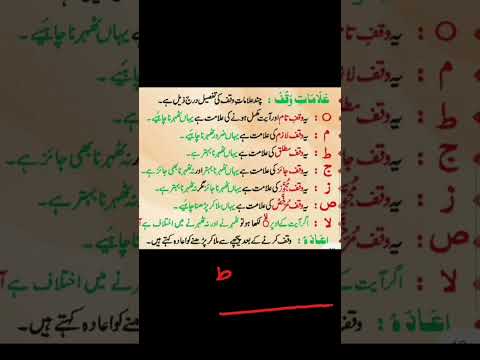 علامات وقف : چند علامات وقف کی تفصیل درج ذیل ہے۔
○ : یہ وقف تام اور آیت مکمل ہونے کی علامت ہے یہاں ٹھہرنا چاہیے۔
م : یہ وقف لازم کی علامت ہے یہاں ضرور ٹھہرنا چاہیے۔
ط : یہ وقف مطلق کی علامت ہے یہاں ٹھہرنا بہتر ہے۔
ج : یہ وقف جائز کی علامت ہے یہاں ٹھہرنا بہتر ہے اور نہ ٹھہرنا بھی جائز ہے۔
ز : یہ وقف مجوز کی علامت ہے یہاں ٹھہرنا جائز مگر نہ ٹھہرنا بہتر ہے۔
ص : یہ وقف مرخص کی علامت ہے یہاں ملا کر پڑھنا چاہیے۔
لا : اگر آیت کے اوپر لا لکھا ہو تو ٹھہرنے اور نہ ٹھہرنے میں اختلاف ہے
اعادہ : وقف کرنے کے بعد پیچھے سے ملا کر پڑھنے کو اعادہ کہتے ہیں۔
ط